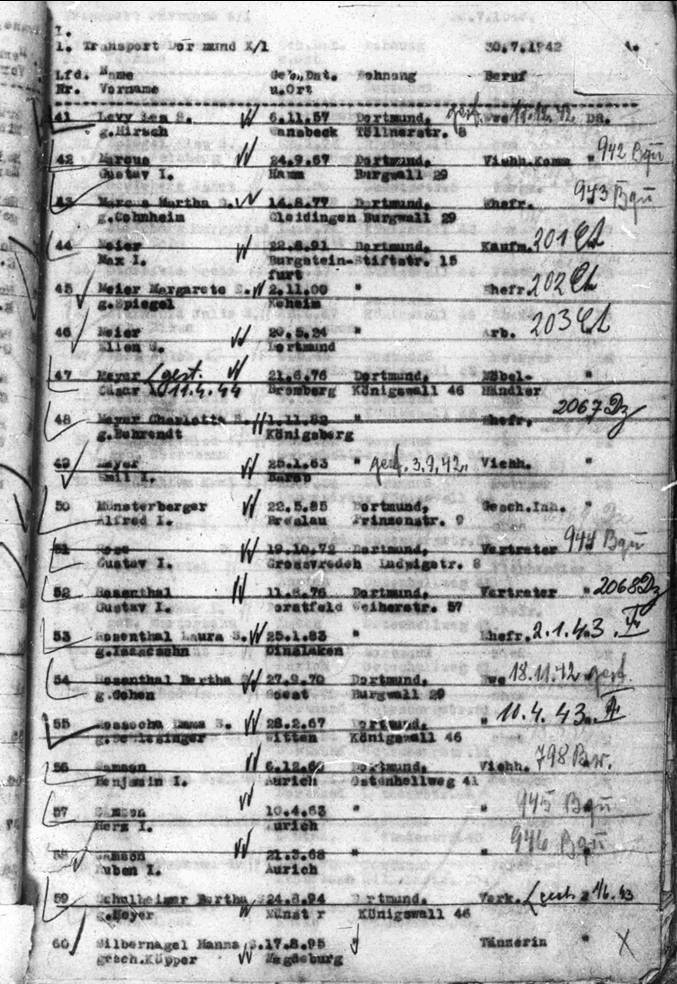 I.
1. Transport Dortmund X/1 30.7.1942
Lfd. Name Geb.Dat. Wohnung Beruf
Nr. Vorname u.Ort
41 Levy S. 6.11.57 Dortmund, gest. Wwe 12.42 DR.
g.Hirsch Wansbeck Töllnerstr. 8
42 Marcus 24.9.67 Dortmund, Viehh.Komm " 942 Bqu
Gustav I. Hamm Burgwall 29
43 Marcus Martha S. 14.8.77 Dortmund, Ehefr. 943 Bqu
g.Cohnheim Gleidingen Burgwall 29
44 Meier 22.8.91 Dortmund, Kaufm. 201
Max I. Burgstein- Stiftstr. 15
furt
45 Meier Margarete S. 2.11.00 " Ehefr. 202
g.Spiegel Neheim
46 Meier 20.5.24 " Arb. 203
Ellen S. Dortmund
47 Meyer gest. 21.6.76 Dortmund, Möbel- "
11.4.44 Bromberg Königswall 46 Händler
48 Meyer Charlotte S. 1.11.82 " Ehefr. 2067 Dz
g.Behrendt Königsberg
49 Meyer 25.1.63 " gest. 3.9.42. Viehh. "
Emil I. Barop
50 Münsterberger 22.5.85 Dortmund, Gesch.Inh. "
Alfred I. Breslau Prinzenstr. 9
51 Rose 19.10.72 Dortmund, Vertreter 944 Bqu
Gustav I. Grossvreden Ludwigstr. 8
52 Rosenthal 11.8.76 Dortmund, Vertreter " 2068 Dz
Gustav I. Weiherstr. 57
53 Rosenthal Laura S. 25.1.83 " Ehefr. 2.1.43
g.Isaacsohn Dinslaken
54 Rosenthal Bertha S. 27.9.70 Dortmund, Wwe 18.11.42 gest.
g.Cohen Soest Burgwall 29
55 Emma S. 28.2.67 Dortmund, " 10.4.43.
g.Schlesinger Witten Königswall 46
56 Samson 6.12. Dortmund, Viehh. 798 Bw.
Benjamin I. Aurich Ostenhellweg 41
57 Samson 10.4.63 " " 945 Bqu
Herz I. Aurich
58 Samson 21.3.68 " " 946 Bqu
Ruben I. Aurich
59 Schulheimer Bertha S. 24.8.94 Dortmund, Verk. gest. 1/6.43
g.Meyer Münster Königswall 46
60 Silbernagel Hanna S. 17.8.95 " Tännerin " X
gesch.Küpper Magdeburg